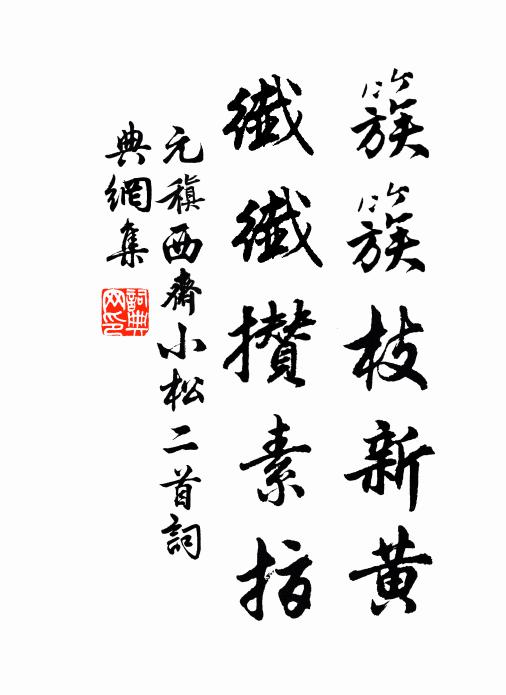 簇簇枝新黄
纖纖攢素指
元稹西齋小松二首詞
典網集
詞典
网印